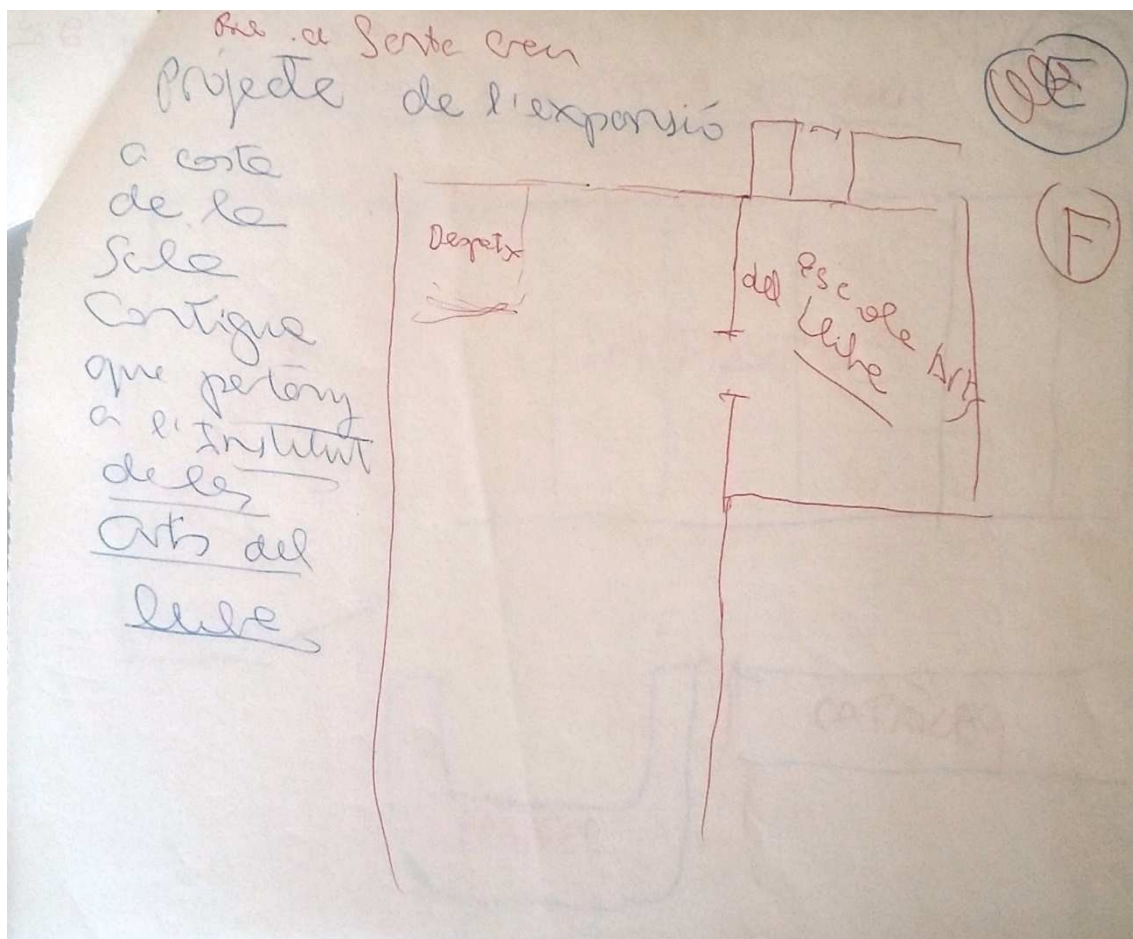 a Santa Creu
Projecte de l'expansió
a costa
de la
Sala
Contigua
que pertany
a l'Institut
de les
arts del
llibre
Despatx
Escola Arts
del Llibre
E
F